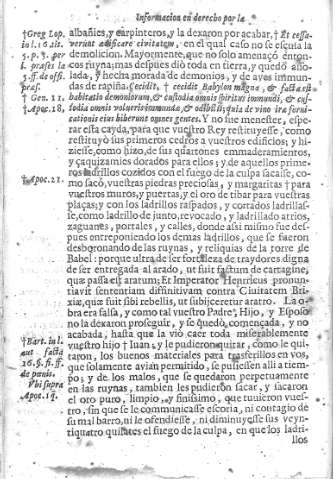 Informacion en derecho por la
albañies, y carpinteros, y la dexaron por acabar, † Et cessa-
verunt ædificare civitatem, en el qual caso no se escusa la
demolicion. Mayormente, que no solo amenaçò enton-
ces ruyna; mas despues diò toda en tierra, y quedò aho-
lada, y hecha morada de demonios, y de aves immun-
das de rapiña. Cecidit, † cecidit Babylon magna, & facta est
habitatio demoniorum, & custodia omnis spiritus immundi, & cus-
todia omnis volucris immunda, & odibilis; quia de vino ira forni-
cationis eius biberunt omnes gentes. Y no fue menester, espe-
rar esta cayda, para que vuestro Rey restituyesse, como
restituyò sus primeros cedros a vuestros edificios; y hi-
ziesse, como hizo, de sus quartones emmaderamientos,
y çaquizamies dorados para ellos; y de aquellos prime-
ros ladrillos cozidos con el fuego de la culpa sacasse, co-
mo sacò, vuestras piedras preciosas, y margaritas † para
vuestros muros, y puertas, y el oro de tibar para vuestras
plaças; y con los ladrillos raspados, y cortados ladrillas-
se, como ladrillo de junto, revocado, y ladrillado atrios,
zaguanes, portales, y calles, donde assi mismo fue des-
pues entreponiendo los demas ladrillos, que se fueron
desboronando de las ruynas, y reliquias de la torre de
Babel: porque ultra de ser fortaleza de traydores digna
de ser entregada al arado, ut fuit factum de cartagine,
quæ passa est aratum; Et Imperator Henrricus pronun-
tiavit sententiam diffinitivam contra Civitatem Bri-
xiæ, quæ fuit sibi rebellis, ut subijceretur aratro. La o-
bra era falsa, y como tal vuestro Padre, Hijo, y Esposo
no la dexaron proseguir, y se quedò, començada, y no
acabada, hasta que la viò caer toda miserablemente
vuestro hijo † Iuan, y le pudieron quitar, como le qui-
taron, los buenos materiales para trasferirlos en vos,
que solamente avian permitido, se pusiessen alli a tiem-
po; y de los malos, que se quedaron perpetuamente
en las ruynas, tambien les pudieron sacar, y sacaron
el oro puro, limpio, y finissimo, que tuvieron vues-
tro, sin que se le communicasse escoria, ni contagio de
su mal barro, ni le ofendiesse, ni diminuyesse sus veyn-
tiquatro quilates el fuego de la culpa, en que los ladri-
llos
† Greg Lop.
in l. 16. tit.
5. p. 3. per
l. præses la
3. ff. de offi.
præs.
† Gen. 11.
† Apoc. 18.
† Apoc. 21.
† Bart. in l.
aut facta
16. §. fi. ff.
de pœnis.
Vbi supra
Apoc. 19.